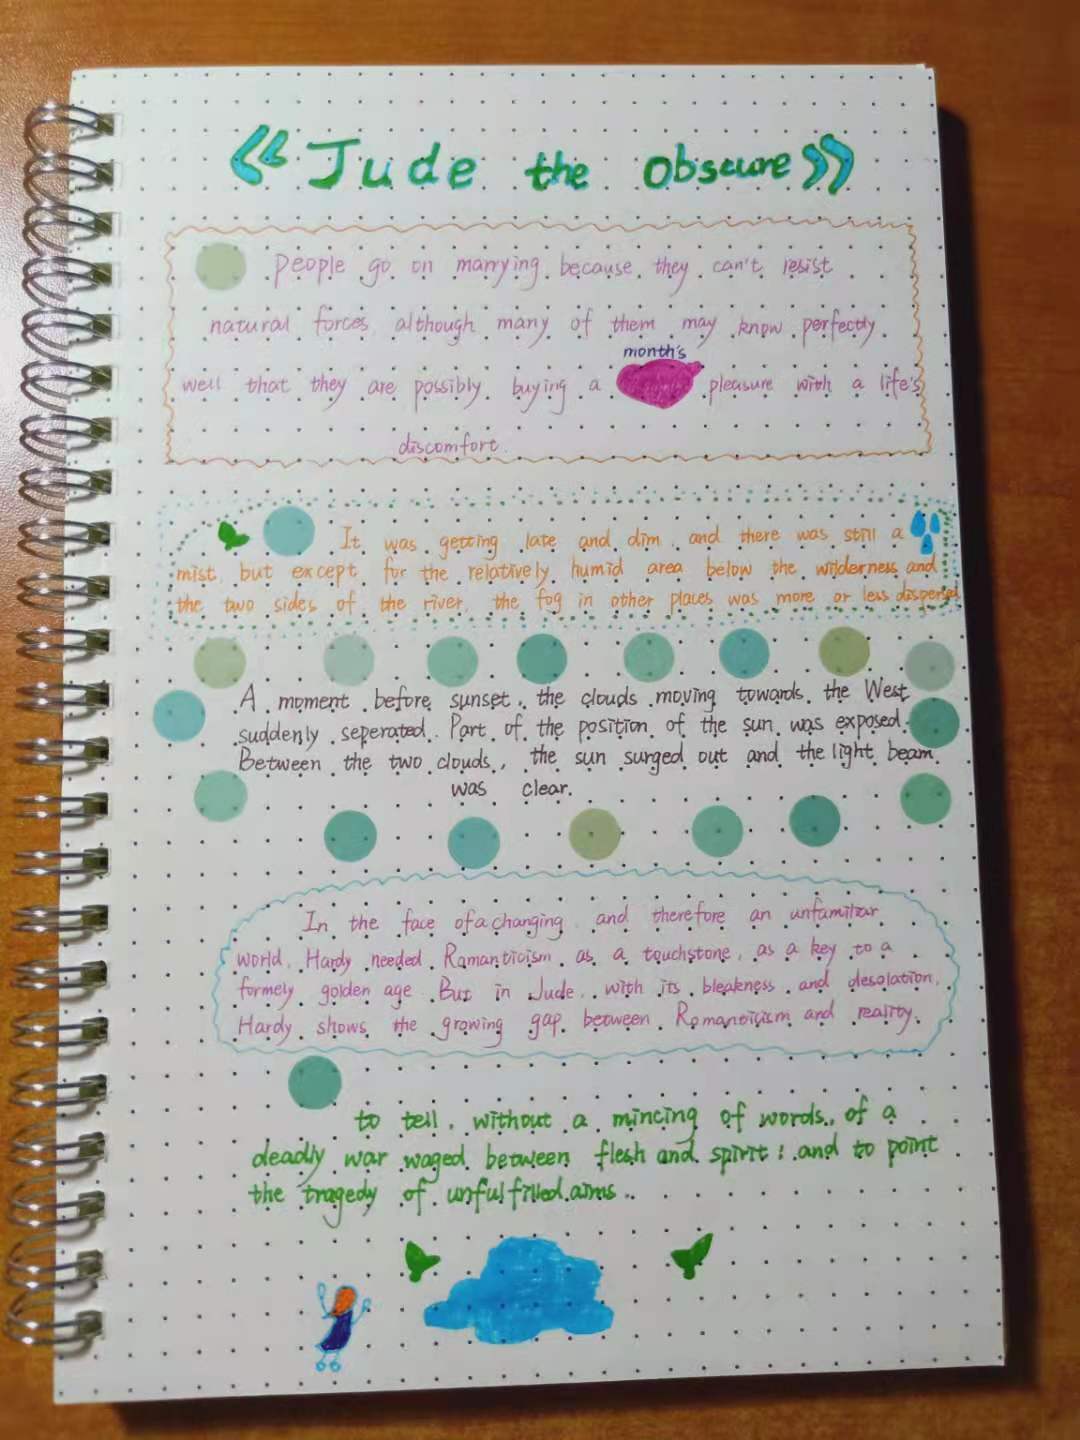 《Jude the Obscure》
People go on marrying because they can't resist
natural forces, although many of them may know perfectly
month's
well that they are possibly buying a pleasure with a life's
discomfort.
It was getting late and dim, and there was still a
mist, but except for the relatively humid area below the wilderness and
the two sides of the river, the fog in other places was more or less dispersed
A moment before sunset, the clouds moving towards the West
suddenly seperated. Part of the position of the sun was exposed.
Between the two clouds, the sun surged out and the light beam
was clear.
In the face of a changing, and therefore an unfamiliar
world, Hardy needed Romanticism as a touchstone, as a key to a
formely golden age. But in Jude, with its bleakness and desolation,
Hardy shows the growing gap between Romanticism and reality.
to tell, without a mincing of words, of a
deadly war waged between flesh and spirit: and to point
the tragedy of unfulfilled aims.